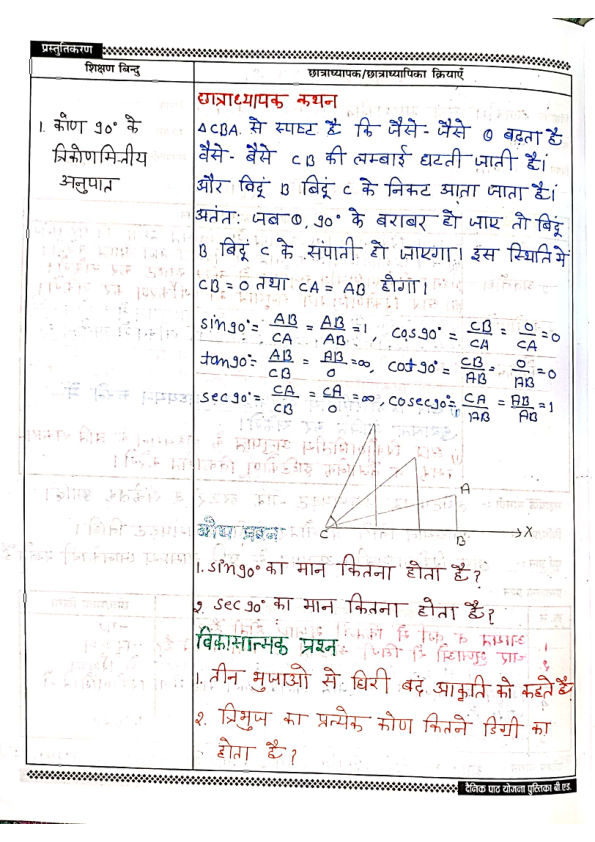 प्रस्तुतिकरण
शिक्षण बिन्दु
छात्राध्यापक/छात्राध्यापिका क्रियाएँ
छात्राध्यापक कथन
1. कोण 90° के
त्रिकोणमितीय
अनुपात
△CBA. से स्पष्ट है कि जैसे-जैसे θ बढ़ता है
वैसे-वैसे CB की लम्बाई घटती जाती है।
और विदूं B बिदूं C के निकट आता जाता है।
अतंत: जब θ, 90° के बराबर हो जाए तो बिदूं
B बिदूं C के संपाती हो जाएगा। इस स्थिति में
CB = 0 तथा CA = AB होगा।
sin90° = AB/CA = AB/AB = 1, cos90° = CB/CA = 0/CA = 0
tan90° = AB/CB = AB/0 = ∞, cot90° = CB/AB = 0/AB = 0
sec90° = CA/CB = CA/0 = ∞, cosec90° = CA/AB = AB/AB = 1
A
C
B
X
बोध प्रश्न
1. sin90° का मान कितना होता है?
2. sec90° का मान कितना होता है?
विकासात्मक प्रश्न
1. तीन भुजाओ से घिरी बदं आकृति को कहते है।
2. त्रिभुज का प्रत्येक कोण कितने डिग्री का
होता है?
दैनिक पाठ योजना पुस्तिका बी.एड.